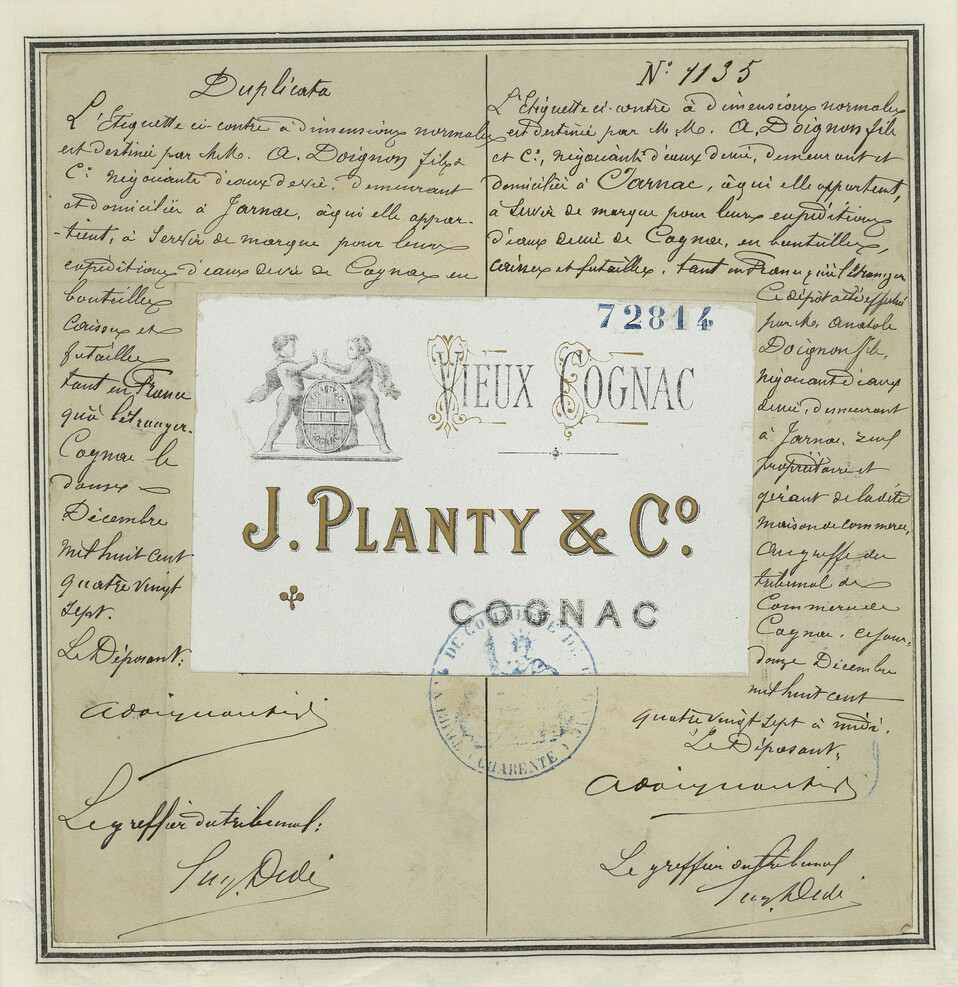 Duplicata
L'Etiquette ci-contre à dimensions normales
est destinée par M.M. A. Doignon fils &
Cie négociants d'eaux de vie, demeurant
et domiciliés à Jarnac, à qui elle appar-
-tient, à servir de marque pour leurs
expéditions d'eaux de vie de Cognac en
bouteilles
caisses et
futailles
tant en France
qu'à l'étranger.
Cognac le
douze
Décembre
mil huit cent
quatre vingt
sept.
Le Déposant:
Le greffier du tribunal:
N° 1135
L'Etiquette ci-contre à dimensions normales
est destinée par M.M. A. Doignon fils
et Cie, négociants d'eaux de vie, demeurant et
domiciliés à Jarnac, à qui elle appartient,
à servir de marque pour leurs expéditions
d'eaux de vie de Cognac, en bouteilles,
caisses et futailles, tant en France qu'à l'étranger
Ce dépôt a été effectué
par Mr Anatole
Doignon fils,
négociant d'eaux
de vie, demeurant
à Jarnac, seul
propriétaire et
gérant de la dite
maison de commerce,
au greffe du
tribunal de
Commerce de
Cognac, ce jour-
douze Décembre
mil huit cent
quatre vingt sept à midi.
Le Déposant,
Le greffier du tribunal
72814
VIEUX COGNAC
J. PLANTY & CO
COGNAC
COGNAC
DE COMMERCE DE
CHARENTE